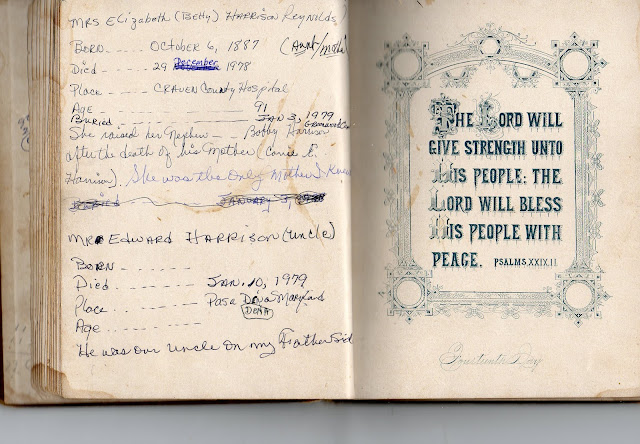 MRS Elizabeth (Betty) Harrison Reynolds
Born ---- October 6, 1887 (Aunt/Mothe
Died ---- 29 December 1978
Place ---- Craven County Hospital
Age ---- 91
Buried ---- JAN 3, 1979
She raised her Nephew - Bobby Harrison
after the death of his Mother (Carrie E.
Harrison). She was the Only Mother I Knew
January 3,
MR Edward Harrison (Uncle)
Born -------
Died -------- JAN. 10, 1979
Place -------- Pasa Dena Maryland
DENA
Age --------
He was our uncle on my Father Sid
THE LORD WILL
GIVE STRENGTH UNTO
HIS PEOPLE: THE
LORD WILL BLESS
HIS PEOPLE WITH
PEACE. PSALMS, XXIX, 11.
Day